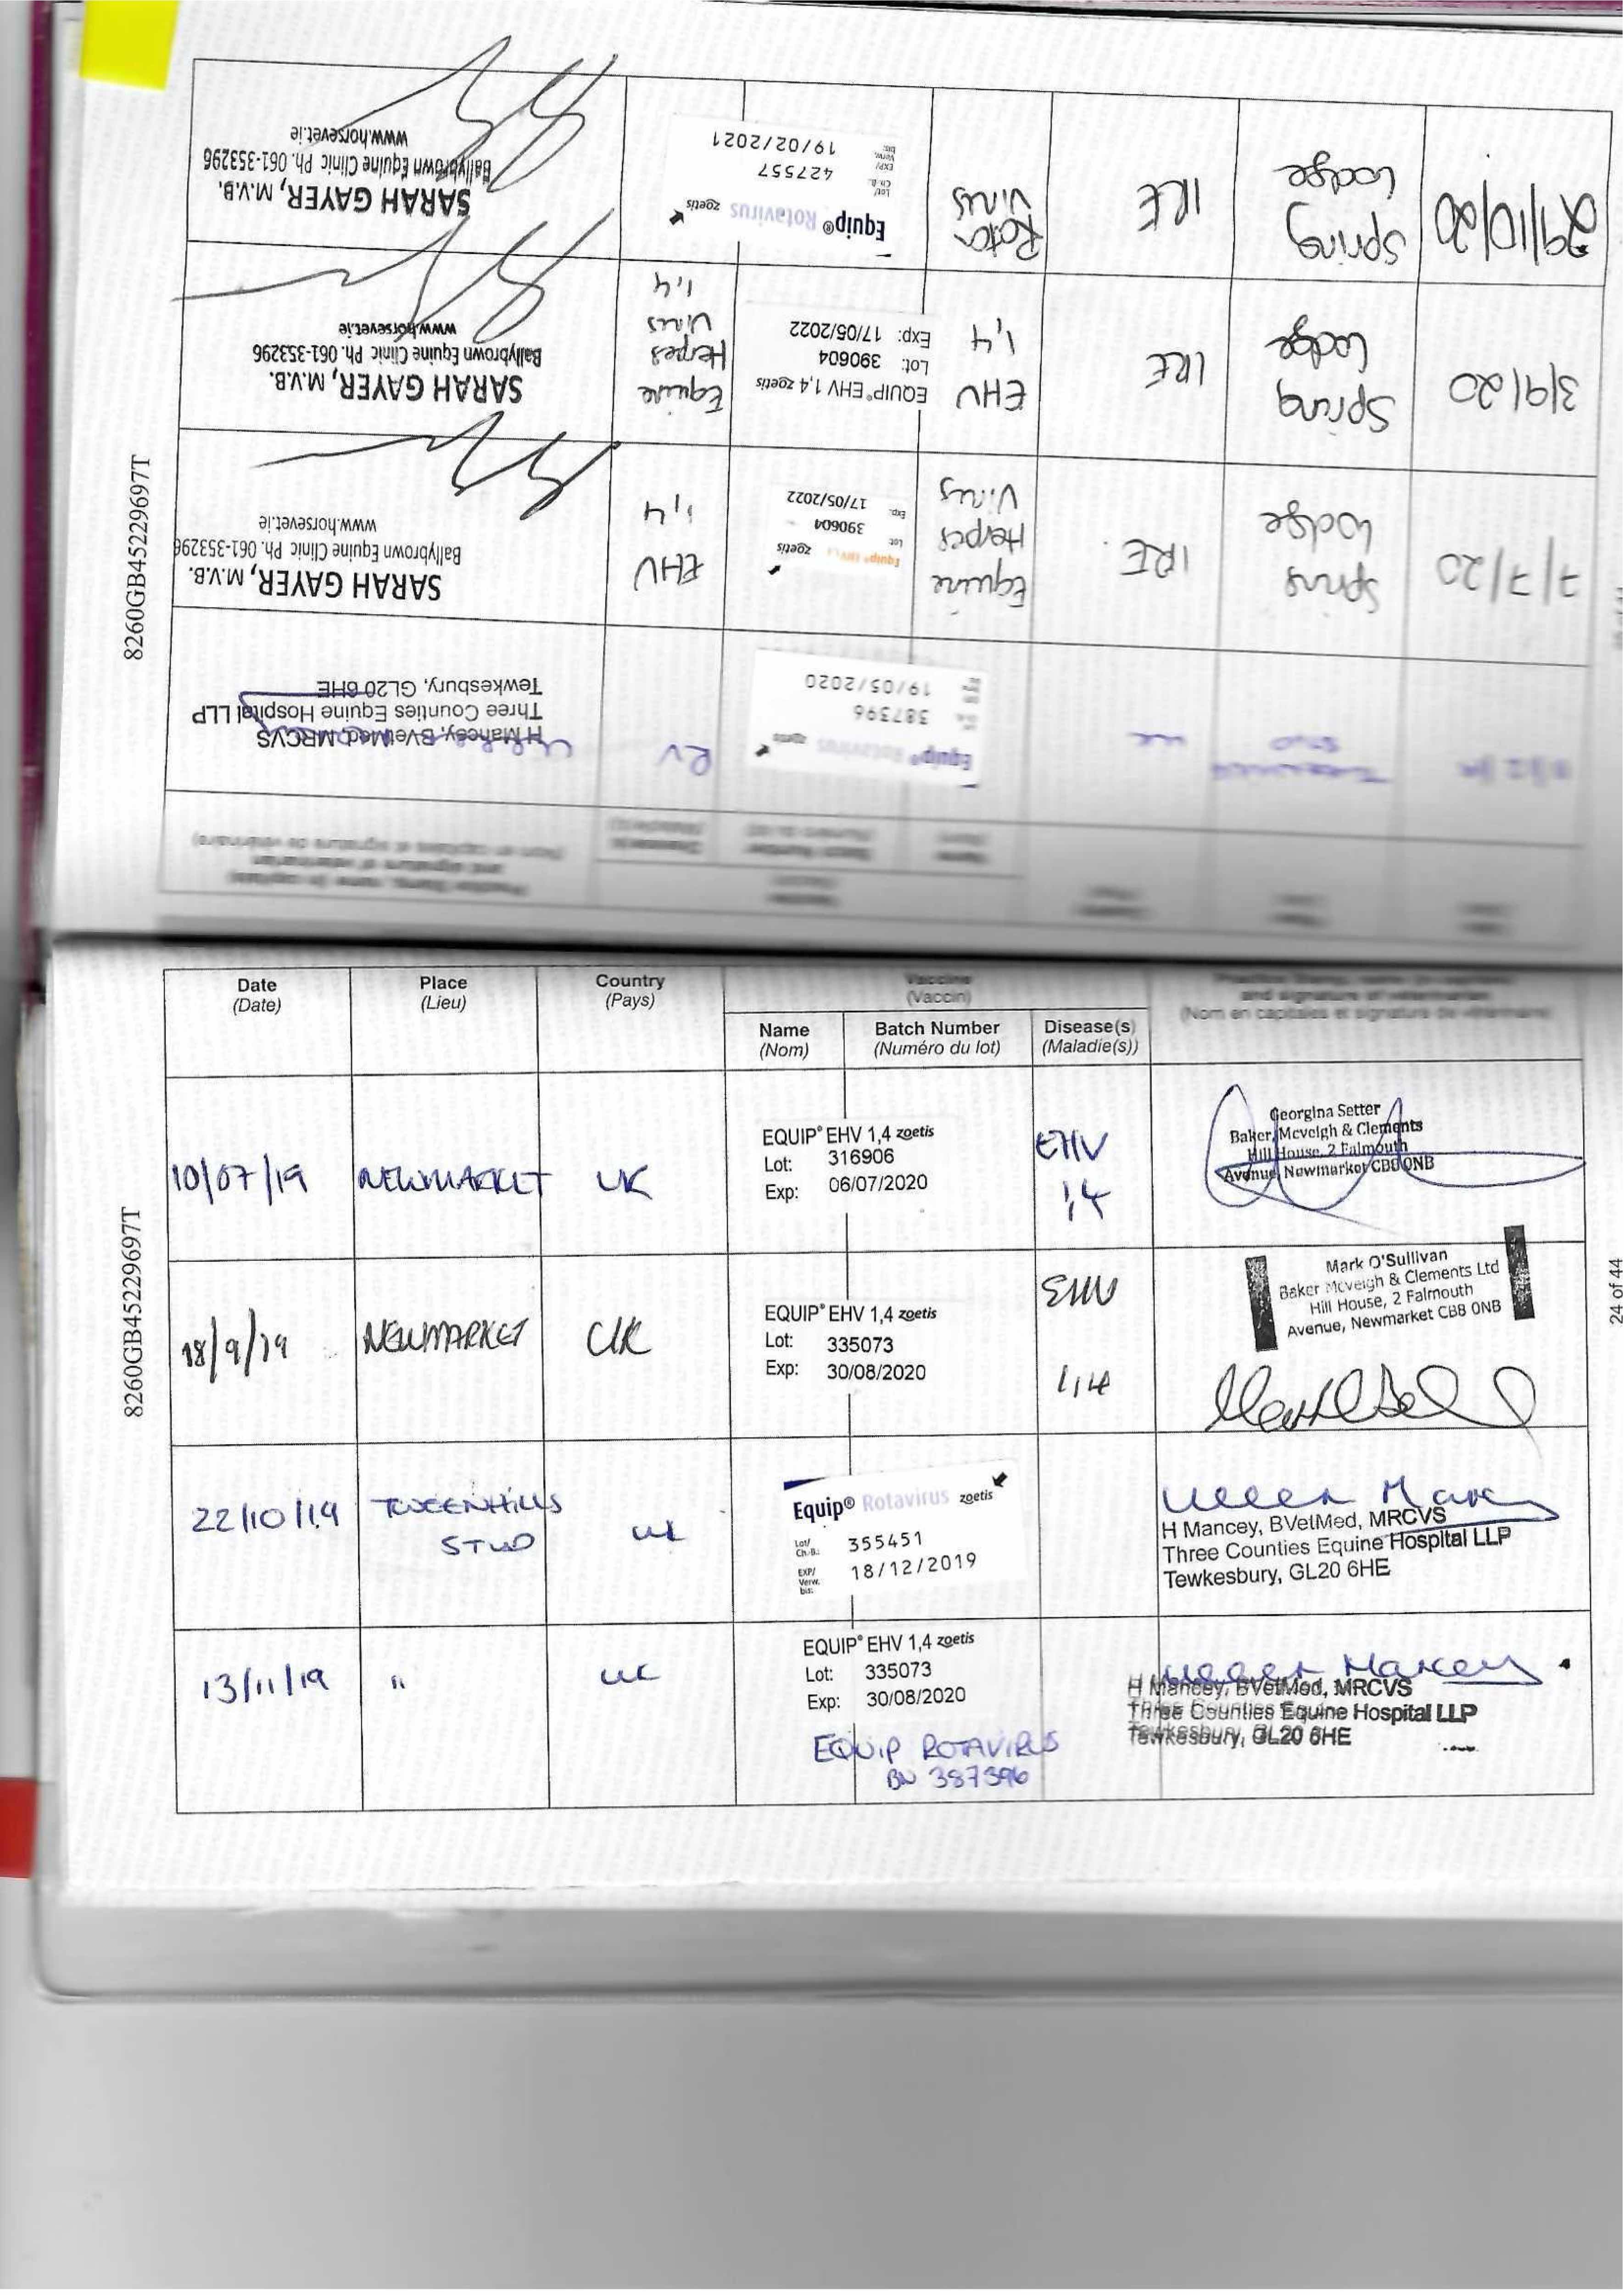 8260GB45229697T
24 of 44
Date
(Date)
Place
(Lieu)
Country
(Pays)
Vaccine
(Vaccin)
Name
(Nom)
Batch Number
(Numéro du lot)
Disease(s)
(Maladie(s))
and signature of veterinarian
(Nom en capitales et signature de vétérinaire)
10/07/19
NEWMARKET
UK
EQUIP® EHV 1,4 zoetis
Lot: 316906
Exp: 06/07/2020
EHV
1,4
Georgina Setter
Baker, Mcveigh & Clements
Hill House, 2 Falmouth
Avenue, Newmarket CB8 0NB
18/9/19
NEWMARKET
UK
EQUIP® EHV 1,4 zoetis
Lot: 335073
Exp: 30/08/2020
EHV
1,4
Mark O'Sullivan
Baker Mcveigh & Clements Ltd
Hill House, 2 Falmouth
Avenue, Newmarket CB8 0NB
22/10/19
TWEENHILLS
STUD
UK
Equip® Rotavirus zoetis
Lot/
Ch.-B.: 355451
EXP/
Verw.
bis: 18/12/2019
H Mancey, BVetMed, MRCVS
Three Counties Equine Hospital LLP
Tewkesbury, GL20 6HE
13/11/19
"
UK
EQUIP® EHV 1,4 zoetis
Lot: 335073
Exp: 30/08/2020
EQUIP ROTAVIRUS
BN 387396
H Mancey, BVetMed, MRCVS
Three Counties Equine Hospital LLP
Tewkesbury, GL20 6HE
8260GB45229697T
and signature of veterinarian
(Nom en capitales et signature de vétérinaire)
STUD
UK
Equip® Rotavirus zoetis
387396
19/05/2020
RV
H Mancey, BVetMed, MRCVS
Three Counties Equine Hospital LLP
Tewkesbury, GL20 6HE
7/7/20
Spring
Lodge
IRE
Equine
Herpes
Virus
Equip® EHV 1,4 zoetis
Lot 390604
Exp. 17/05/2022
EHV
1,4
SARAH GAYER, M.V.B.
Ballybrown Equine Clinic Ph. 061-353296
www.horsevet.ie
3/9/20
Spring
Lodge
IRE
EHV
1,4
EQUIP® EHV 1,4 zoetis
Lot: 390604
Exp: 17/05/2022
Equine
Herpes
Virus
1,4
SARAH GAYER, M.V.B.
Ballybrown Equine Clinic Ph. 061-353296
www.horsevet.ie
29/10/20
Spring
Lodge
IRE
Rota
Virus
Equip® Rotavirus zoetis
Lot/
Ch.-B.: 427557
EXP/
Verw.
bis: 19/02/2021
SARAH GAYER, M.V.B.
Ballybrown Equine Clinic Ph. 061-353296
www.horsevet.ie